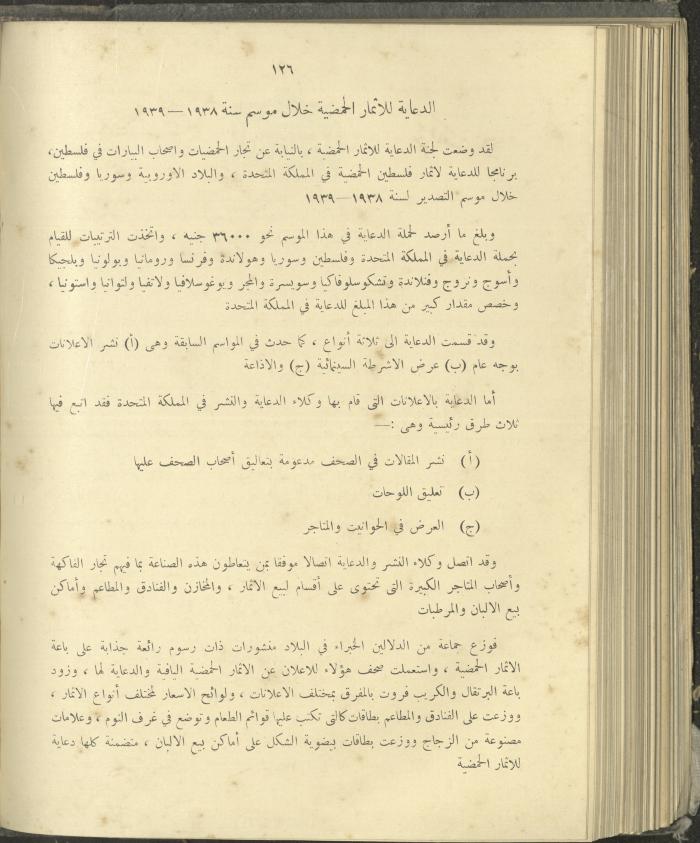 ١٢٦
الدعاية للاثمار الحمضية خلال موسم سنة ١٩٣٨ — ١٩٣٩
لقد وضعت لجنة الدعاية للاثمار الحمضة ، بالنيابة عن تجار الحمضيات واصحاب البيارات في فلسطين،
برنامجا للدعاية لاثمار فلسطين الحمضية في المملكة المتحدة ، والبلاد الاوروبية وسوريا وفلسطين
خلال موسم التصدير لسنة ١٩٣٨—١٩٣٩
وبلغ ما أرصد لحملة الدعاية في هذا الموسم نحو ٣٦٠٠٠ جنيه ، واتخذت الترتيبات للقيام
بحملة الدعاية في المملكة المتحدة وفلسطين وسوريا وهولاندة وفرنسا ورومانيا وبولونيا وبلجيكا
وأسوج ونروج وفنلاندة وتشكوسلوفاكيا وسويسرة والمجر ويوغوسلافيا ولاتفيا ولتوانيا واستونيا ،
وخصص مقدار كبير من هذا المبلغ للدعاية في المملكة المتحدة
وقد قسمت الدعاية الى ثلاثة أنواع ، كما حدث في المواسم السابقة وهى (أ) نشر الاعلانات
بوجه عام (ب) عرض الاشرطة السينمائية (ج) والاذاعة
أما الدعاية بالاعلانات التى قام بها وكلاء الدعاية والنشر في المملكة المتحدة فقد اتبع فيها
ثلاث طرق رئيسية وهى :—
(أ) نشر المقالات في الصحف مدعومة بتعاليق أصحاب الصحف عليها
(ب) تعليق اللوحات
(ج) العرض في الحوانيت والمتاجر
وقد اتصل وكلاء النشر والدعاية اتصالا موفقا بمن يتعاطون هذه الصناعة بما فيهم تجار الفاكهة
وأصحاب المتاجر الكبيرة التى تحتوى على أقسام لبيع الاثمار ، والمخازن والفنادق والمطاعم وأماكن
بيع الالبان والمرطبات
فوزع جماعة من الدلالين الخبراء في البلاد منشورات ذات رسوم رائعة جذابة على باعة
الاثمار الحمضية ، واستعملت صحف هؤلاء للاعلان عن الاثمار الحمضية اليافية والدعاية لها ، وزود
باعة البرتقال والكريب فروت بالمفرق بمختلف الاعلانات ، ولوائح الاسعار لمختلف أنواع الاثمار ،
ووزعت على الفنادق والمطاعم بطاقات كالتى تكتب عليها قوائم الطعام وتوضع في غرف النوم ، وعلامات
مصنوعة من الزجاج ووزعت بطاقات بيضوية الشكل على أماكن بيع الالبان ، متضمنة كلها دعاية
للاثمار الحمضية